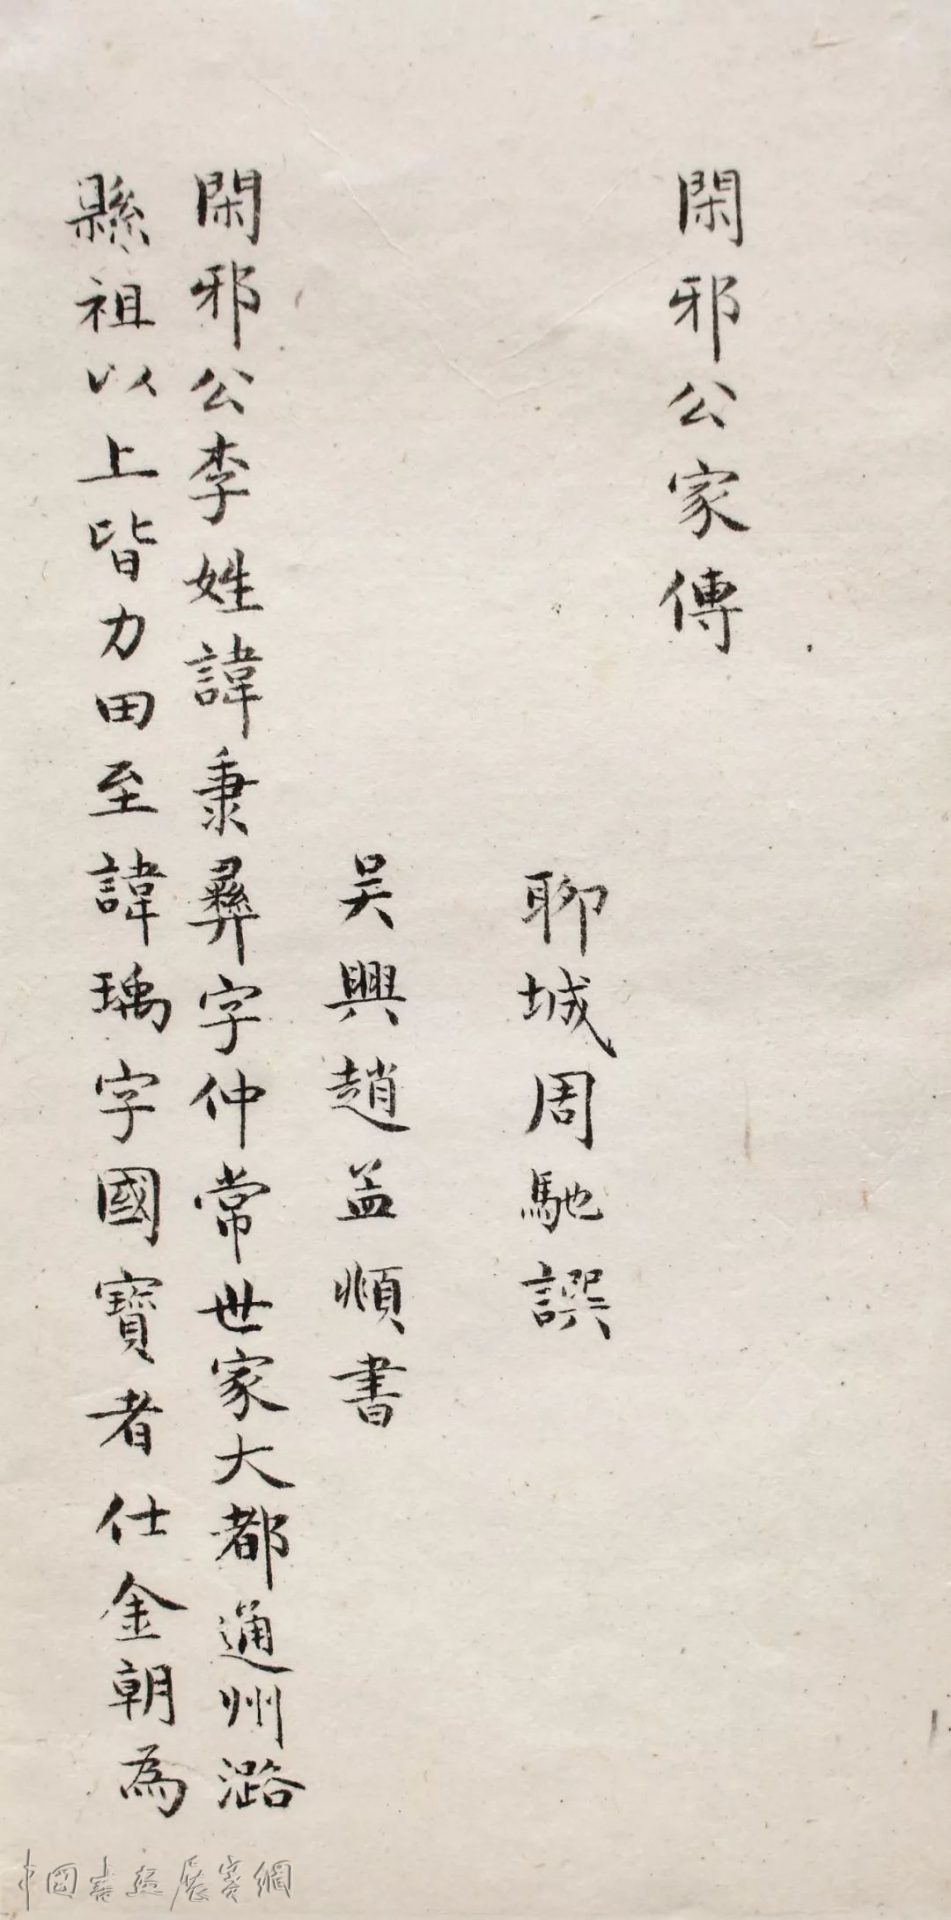 閑邪公家傳
聊城周馳譔
吴興趙孟順書
閑邪公李姓諱秉彝字仲常世家大都通州潞
縣祖以上皆力田至諱瑀字國寶者仕金朝為
中國書畫展賽網